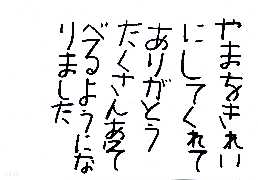 やまをきれい
にしてくれて
ありがとう
たくさんあそ
べるようにな
りました